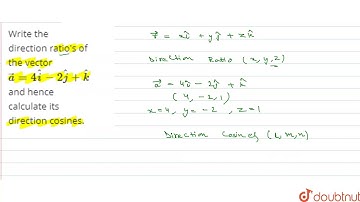 Write the
direction ratio's of
the vector
a⃗ = 4î − 2ĵ + k̂
and hence
calculate its
direction cosines.
r⃗ = xî + yĵ + zk̂
Direction Ratio (x, y, z)
a⃗ = 4î − 2ĵ + k̂
(4, −2, 1)
x=4, y=−2, z=1
Direction Cosines (l, m, n)
doubtnut